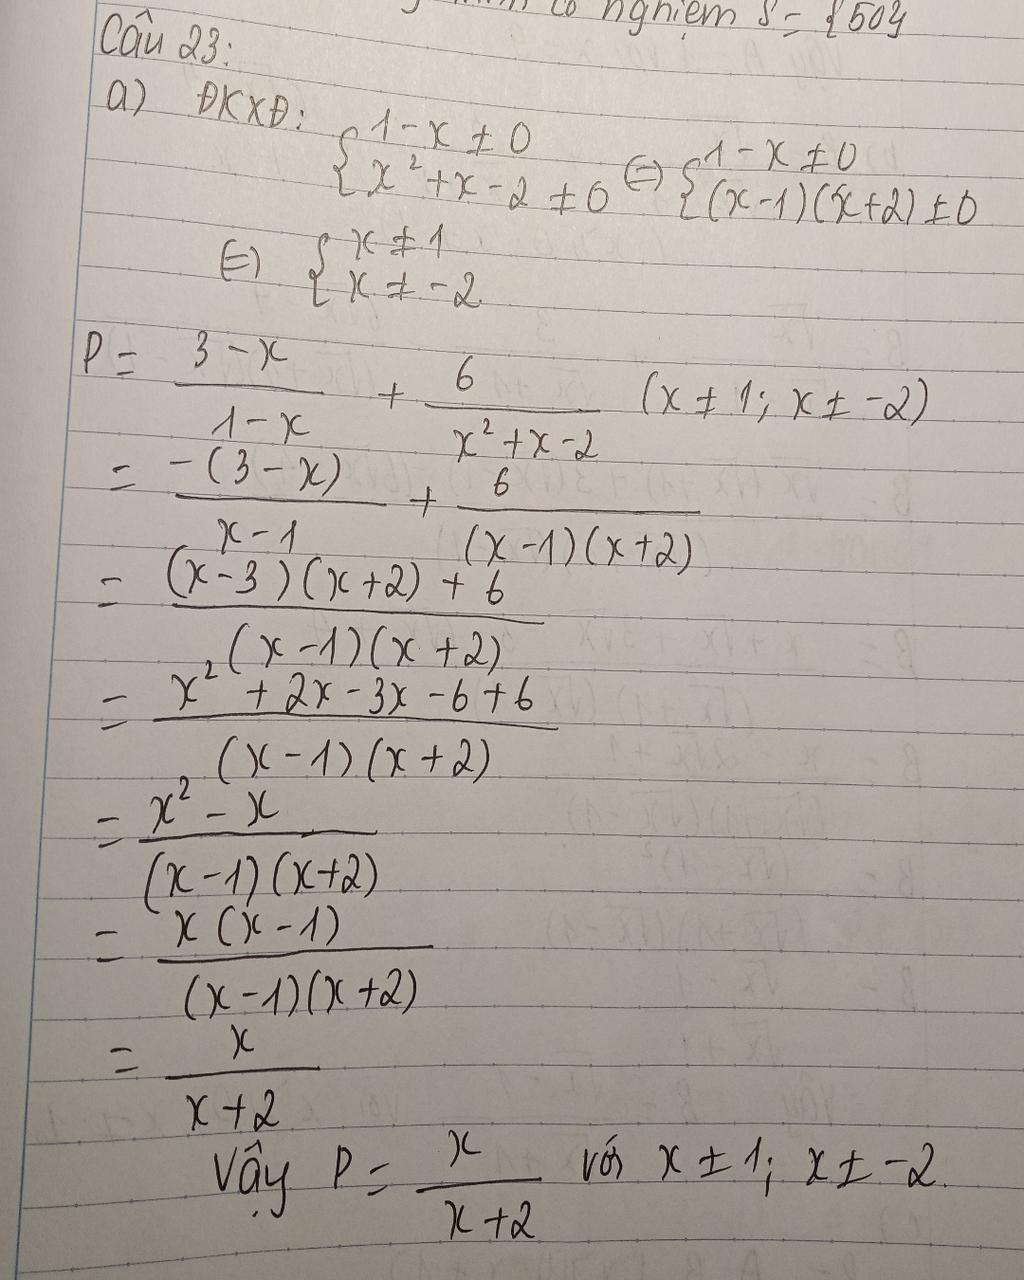 có nghiệm S = {50}
Câu 23:
a) ĐKXĐ: { 1-x ≠ 0 ⇔ { 1-x ≠ 0
{ x² + x - 2 ≠ 0 { (x-1)(x+2) ≠ 0
⇔ { x ≠ 1
{ x ≠ -2
P = (3-x)/(1-x) + 6/(x²+x-2) (x ≠ 1; x ≠ -2)
= -(3-x)/(x-1) + 6/((x-1)(x+2))
= ((x-3)(x+2) + 6)/((x-1)(x+2))
= (x² + 2x - 3x - 6 + 6)/((x-1)(x+2))
= (x² - x)/((x-1)(x+2))
= x(x-1)/((x-1)(x+2))
= x/(x+2)
Vậy P = x/(x+2) với x ≠ 1; x ≠ -2.